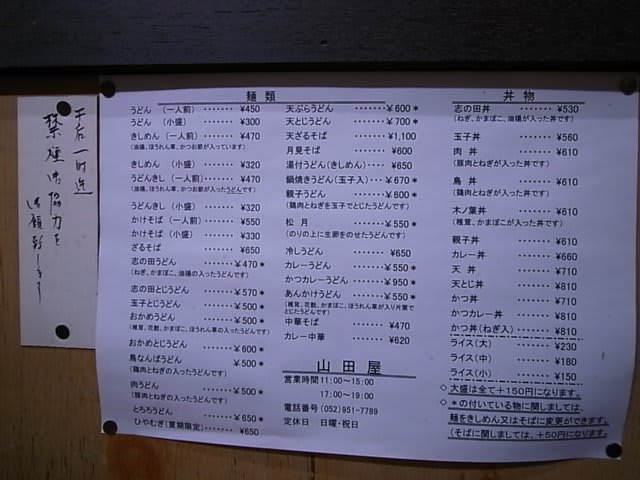 禁煙御協力を
麺類
うどん (一人前) ‥‥‥ ¥450
うどん (小盛) ‥‥‥ ¥300
きしめん (一人前) ‥‥‥ ¥470
(油揚、ほうれん草、かつお節が入っています)
きしめん (小盛) ‥‥‥ ¥320
うどんきし (一人前) ‥‥‥ ¥470
(油揚、ほうれん草、かつお節が入ったうどんです)
うどんきし (小盛) ‥‥‥ ¥320
かけそば (一人前) ‥‥‥ ¥550
かけそば (小盛) ‥‥‥ ¥330
ざるそば ‥‥‥ ¥650
志の田うどん ‥‥‥ ¥470*
(ねぎ、かまぼこ、油揚の入ったうどんです)
志の田とじうどん ‥‥‥ ¥570*
玉子とじうどん ‥‥‥ ¥500*
おかめうどん ‥‥‥ ¥500*
(椎茸、花麩、かまぼこ、ほうれん草の入ったうどんです)
おかめとじうどん ‥‥‥ ¥600*
鳥なんばうどん ‥‥‥ ¥500*
(鶏肉とねぎの入ったうどんです)
肉うどん ‥‥‥ ¥500*
(豚肉とねぎの入ったうどんです)
とろろうどん ‥‥‥ ¥650*
ひやむぎ(夏期限定) ‥‥‥ ¥650
天ぷらうどん ‥‥‥ ¥600*
天とじうどん ‥‥‥ ¥700*
天ざるそば ‥‥‥ ¥1,100
月見そば ‥‥‥ ¥600
湯付うどん(きしめん) ‥‥‥ ¥650
鍋焼きうどん(玉子入) ‥‥‥ ¥670*
親子うどん ‥‥‥ ¥600*
(鶏肉とねぎを玉子でとじたうどんです)
松月 ‥‥‥ ¥550*
(のりの上に生卵をのせたうどんです)
冷しうどん ‥‥‥ ¥650
カレーうどん ‥‥‥ ¥550*
かつカレーうどん ‥‥‥ ¥950*
あんかけうどん ‥‥‥ ¥550*
(椎茸、花麩、かまぼこ、ほうれん草が入り片栗で
とじたうどんです)
中華そば ‥‥‥ ¥470
カレー中華 ‥‥‥ ¥620
山田屋
営業時間 11:00〜15:00
17:00〜19:00
電話番号 (052)951-7789
定休日 日曜・祝日
丼物
志の田丼 ‥‥‥ ¥530
(ねぎ、かまぼこ、油揚が入った丼です)
玉子丼 ‥‥‥ ¥560
肉丼 ‥‥‥ ¥610
(豚肉とねぎが入った丼です)
鳥丼 ‥‥‥ ¥610
(鶏肉とねぎが入った丼です)
木ノ葉丼 ‥‥‥ ¥610
(椎茸、かまぼこが入った丼です)
親子丼 ‥‥‥ ¥610
カレー丼 ‥‥‥ ¥660
天丼 ‥‥‥ ¥710
天とじ丼 ‥‥‥ ¥810
かつ丼 ‥‥‥ ¥710
かつカレー丼 ‥‥‥ ¥810
かつ丼(ねぎ入) ‥‥‥ ¥810
ライス(大) ‥‥‥ ¥230
ライス(中) ‥‥‥ ¥180
ライス(小) ‥‥‥ ¥150
◇大盛は全て+150円になります。
◇*の付いている物に関しましては、
麺をきしめん又はそばに変更ができます。
(そばに関しましては、+50円になります。)